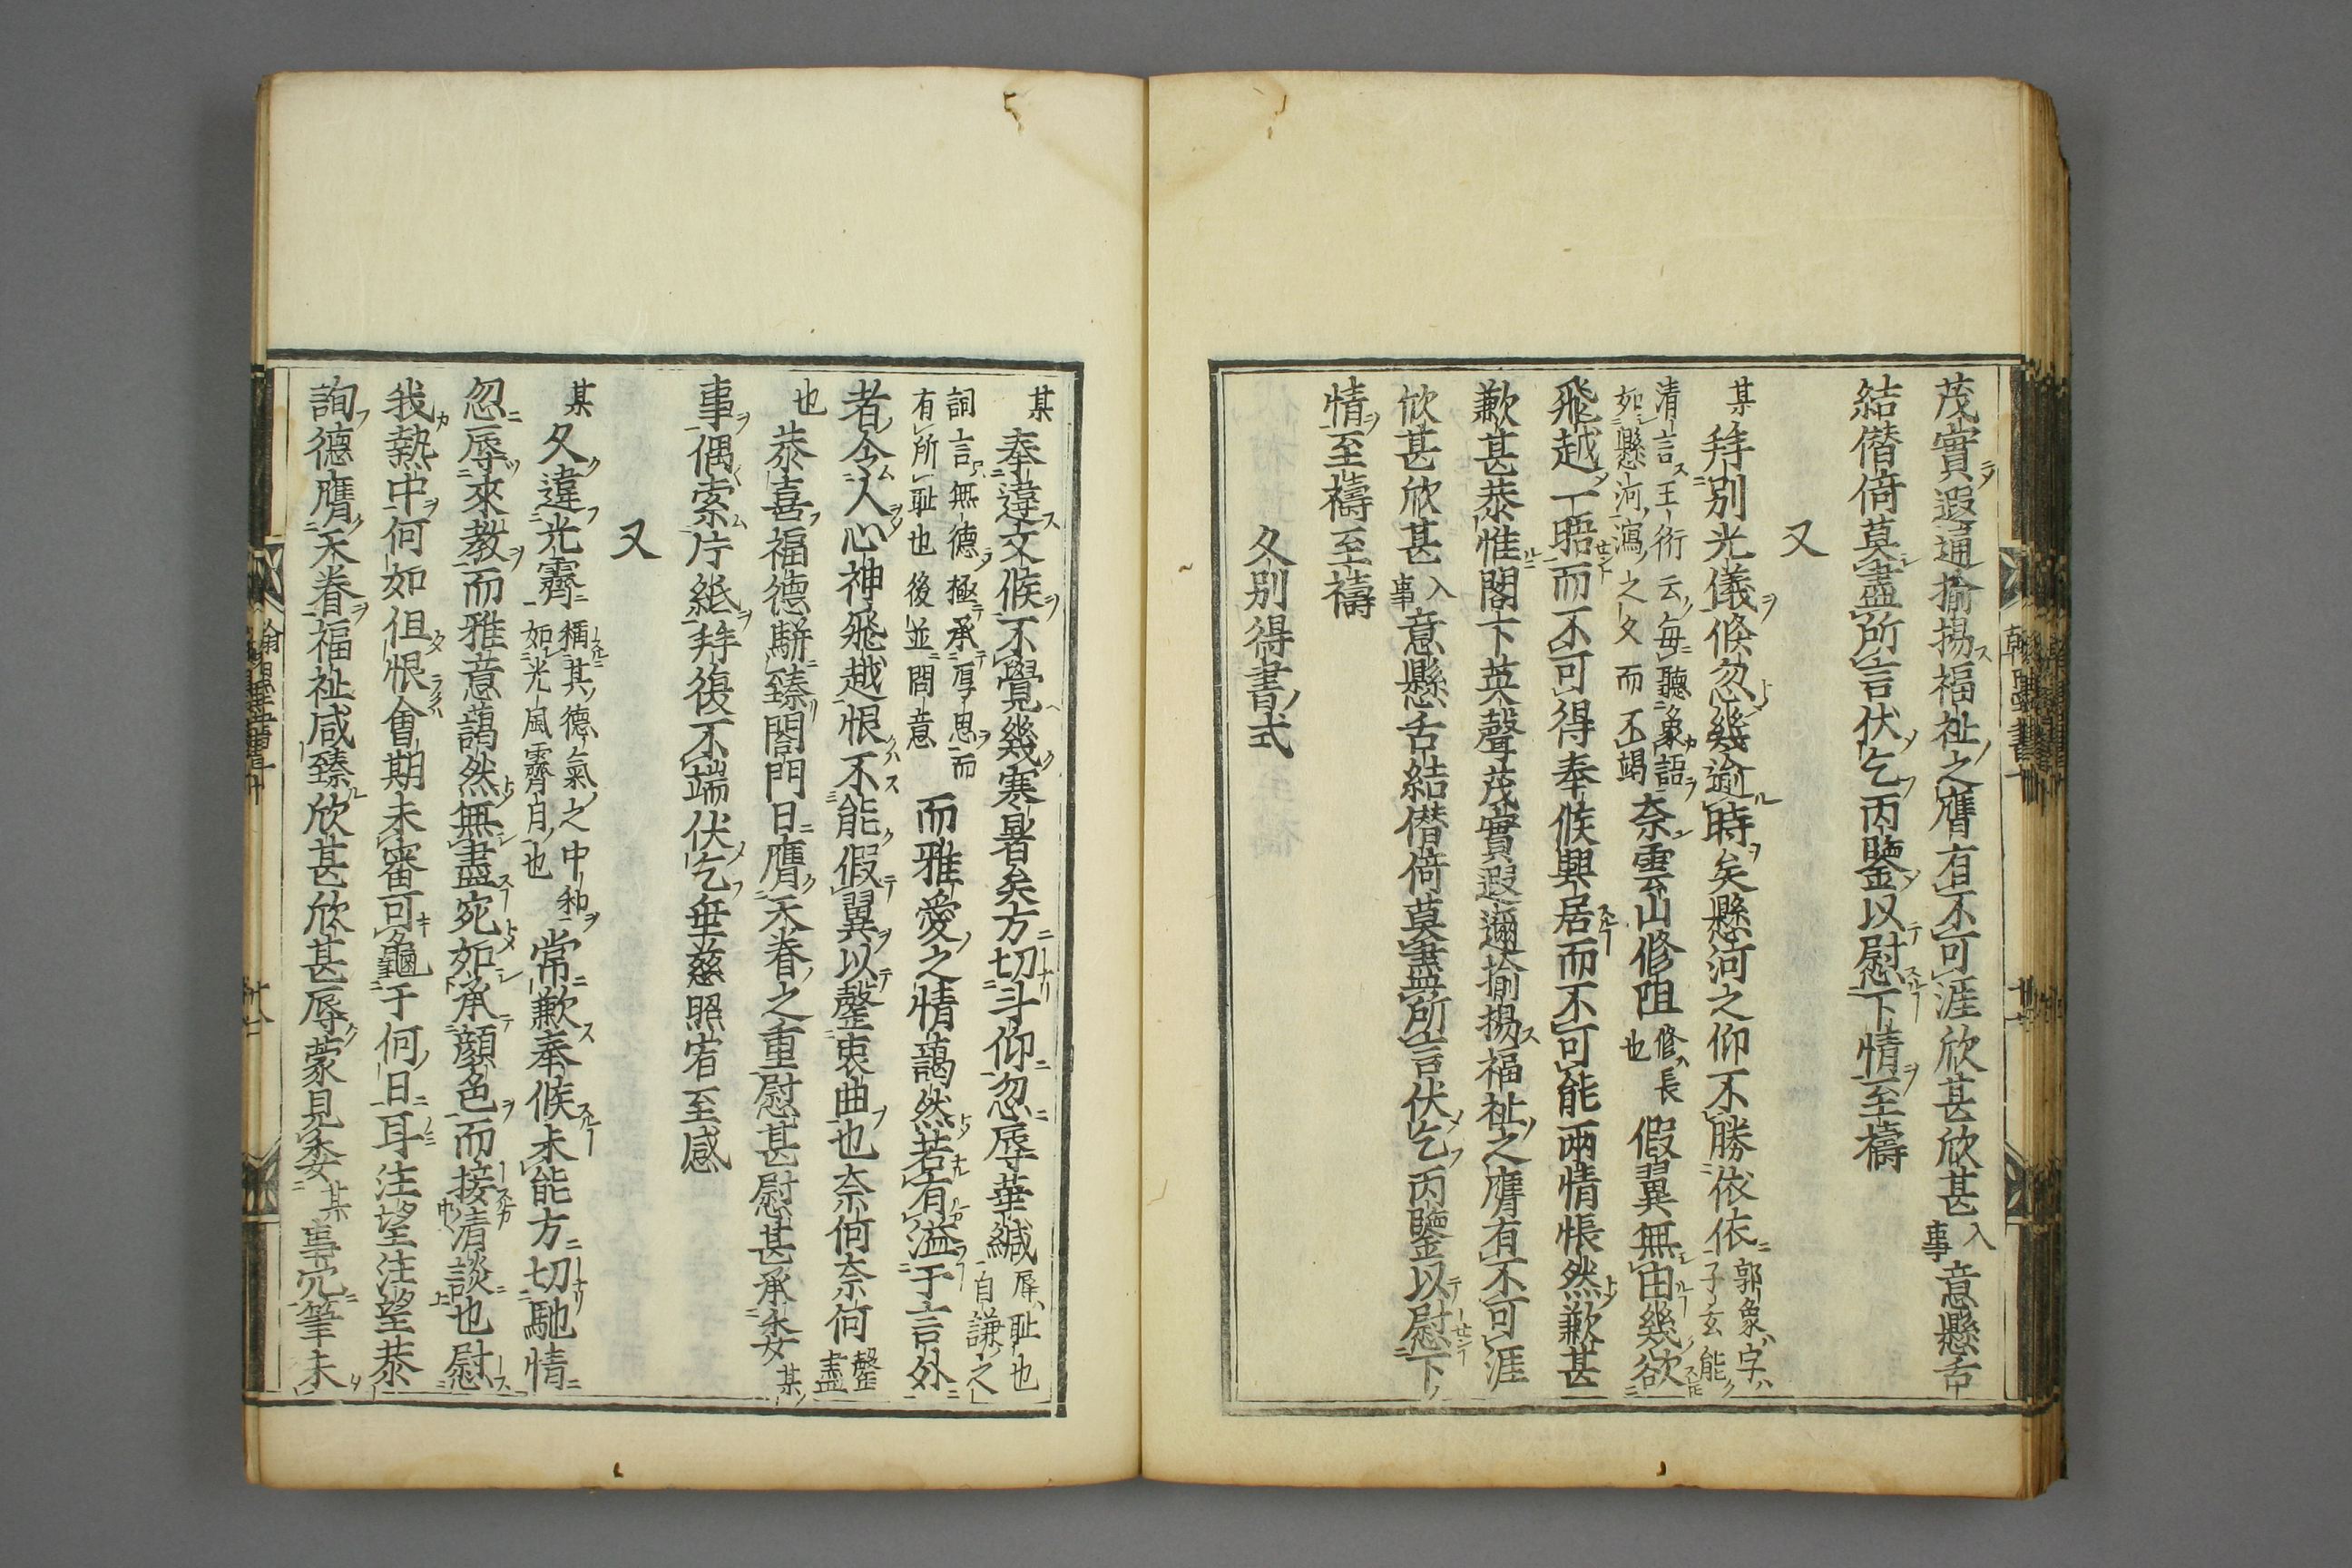 茂實遐邇揄揚福祉之膺有不可涯欣甚欣甚入事意懸舌
結僭偹莫盡所言伏乞丙鑒以慰下情至禱
又
某拜別光儀倐忽幾逾時矣懸河之仰不勝依依郭象字子玄能
清言王衍云每聽象語如懸河瀉之久而不竭奈雲山修阻修長也假翼無由幾欲
飛越一晤而不可得奉候興居而不可能兩情悵然歉甚
歉甚恭惟閣下英聲茂實遐邇揄揚福祉之膺有不可涯
欣甚欣甚入事意懸舌結僭偹莫盡所言伏乞丙鑒以慰下
情至禱至禱
久別得書式
某奉違文候不覺幾寒暑矣方切斗仰忽辱華緘辱耻也自謙之
詞言無德極承厚恩而有所耻也後並問意而雅愛之情藹然若有溢于言外
者令人心神飛越恨不能假翼以罄衷曲也奈何奈何罄盡
也恭喜福德駢臻閤門日膺天眷之重慰甚慰甚承委某
事偶索片紙拜復不端伏乞垂慈照宥至感
又
某久違光霽稱其德氣之中和如光風霽月也常歉奉候未能方切馳情
忽辱來教而雅意藹然無盡宛如承顏色而接清談也慰
我熱中何如但恨會期未審可龜于何日耳注望注望恭
詢德膺天眷福祉咸臻欣甚欣甚辱蒙見委某事冗筆未